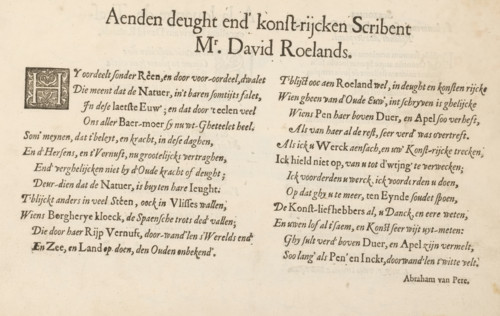 Aenden deught end' konst-rijcken Scribent
Mr. David Roelands.
HY oordeelt sonder Réen, en door voor-oordeel, dwalet
Die meent dat de Natuer, in't baren somtijts falet,
In dese laetste Euw; en dat door 'teelen veel
Ons aller Baer-moer sy nu wt-Gheteelet heel.
Som' meynen, dat t'beleyt, en kracht, in dese daghen,
En d'Hersens, en t'Vernuft, nu grootelijcx vertraghen,
End' verghelijcken niet by d'Oude kracht of deught;
Deur-dien dat de Natuer, is buyten hare Ieught:
T'blijckt anders in veel Stéen, oock in Vlissen wallen,
Wiens Borgherye kloeck, de Spaensche trots ded vallen;
Die door haer Rijp Vernuft, door-wand'len s'Werelds end'
En Zee, en Land op doen, den Ouden onbekend'.
T'blijct ooc aen Roeland wel, in deught en konsten rijcke
Wien gheen van d'Oude Euw', int schryven is ghelijcke
Wiens Pen haer boven Duer, en Apel soo verhest,
Als van haer al de rest, seer verd' was overtrest.
Als ick u Werck aensach, en uw' Konst-rijcke trecken,
Ick hield niet op, van u tot d'wtjng' te verwecken;
Ick voorderden u werck, ick voorderden u doen,
Op dat ghy u te meer, ten Eynde soudet spoen,
De Konst-liefhebbers al, u Danck, en eere weten,
En uwen lof al t'saem, en Konst seer wijt uyt-meten:
Ghy sult verd' boven Duer, en Apel zijn vermelt,
Soo lang' als Pen' en Inckt, doorwand'len t'witte velt.
Abraham van Pere.